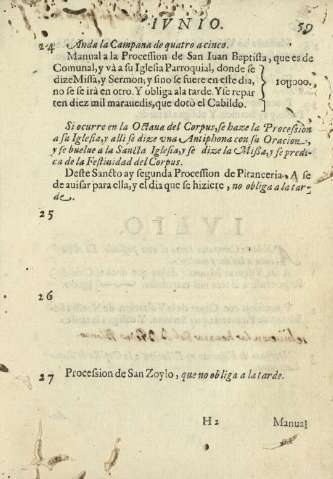 IVNIO. 59
24 Anda la Campana de quatro a cinco.
Manual a la Procession de San Iuan Baptista, que es de
Comunal, y và à su Iglesia Parroquial, donde se
dize Missa, y Sermon, y sino se fuere en este dia,
no se se irá en otro. Y obliga ala tarde. Y se repar
ten diez mil marauedis, que dotò el Cabildo.
10U000.
Si ocurre en la Octaua del Corpus, se haze la Procession
a su Iglesia, y alli se dize vna Antiphona con su Oracion,
y se buelue a la Sancta Iglesia, y se dize la Missa, y se predi
ca de la Festiuidad del Corpus.
Deste Sancto ay segunda Procession de Pitanceria, A se
de auisar para ella, y el dia que se hiziere, no obliga a la tar-
de.
25
26
27 Procession de San Zoylo, que no obliga a la tarde.
H2 Manual